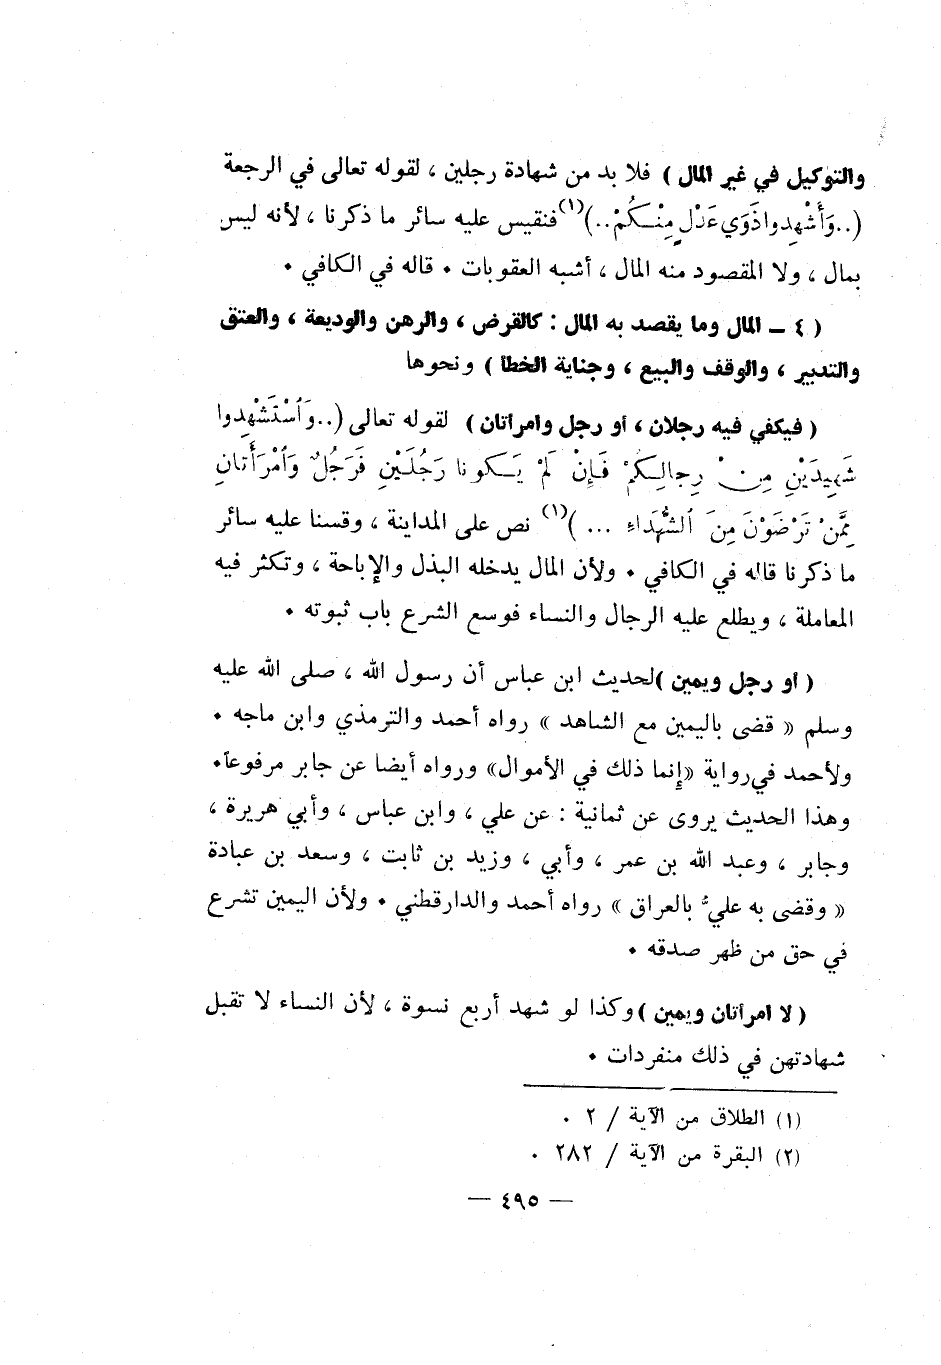 والتوكيل في غير المال ) فلا بد من شهادة رجلين ، لقوله تعالى في الرجعة
(..وَأَشْهِدوا ذَوَي عَدْلٍ مِنْكُمْ..)(١) فنقيس عليه سائر ما ذكرنا ، لأنه ليس
بمال ، ولا المقصود منه المال ، أشبه العقوبات • قاله في الكافي •
( ٤ ــ المال وما يقصد به المال : كالقرض ، والرهن والوديعة ، والعتق
والتدبير ، والوقف والبيع ، وجناية الخطأ ) ونحوها
( فيكفي فيه رجلان ، أو رجل وامرأتان ) لقوله تعالى (..وَٱسْتَشْهِدوا
شَهِيدَيْنِ مِنْ رِجالِكُمْ فَإِنْ لَمْ يَكونا رَجُلَيْنِ فَرَجُلٌ وَٱمْرَأَتانِ
مِمَّنْ تَرْضَوْنَ مِنَ ٱلشُّهَدَاءِ ... )(١) نص على المداينة ، وقسنا عليه سائر
ما ذكرنا قاله في الكافي • ولأن المال يدخله البذل والإباحة ، وتكثر فيه
المعاملة ، ويطلع عليه الرجال والنساء فوسع الشرع باب ثبوته •
( أو رجل ويمين )لحديث ابن عباس أن رسول الله ، صلى الله عليه
وسلم « قضى باليمين مع الشاهد » رواه أحمد والترمذي وابن ماجه •
ولأحمد في رواية «إنما ذلك في الأموال» ورواه أيضا عن جابر مرفوعاً•
وهذا الحديث يروى عن ثمانية : عن علي ، وابن عباس ، وأبي هريرة ،
وجابر ، وعبد الله بن عمر ، وأبي ، وزيد بن ثابت ، وسعد بن عبادة
« وقضى به عليٌّ بالعراق » رواه أحمد والدارقطني • ولأن اليمين تشرع
في حق من ظهر صدقه •
( لا امرأتان ويمين )وكذا لو شهد أربع نسوة ، لأن النساء لا تقبل
شهادتهن في ذلك منفردات •
(١) الطلاق من الآية / ٢ .
(٢) البقرة من الآية / ٢٨٢ .
— ٤٩٥ —